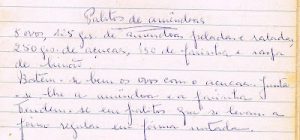 Palitos de amêndoas
5 ovos, 125 grs. de amêndoas peladas e raladas,
250 grs. de açucar, 150 de farinha e raspa
de limão.
Batem-se bem os ovos com o açucar. Junta-
-se-lhe a amêndoa e a farinha
Tendem-se em palitos que se levam a
forno regular em forma untada.